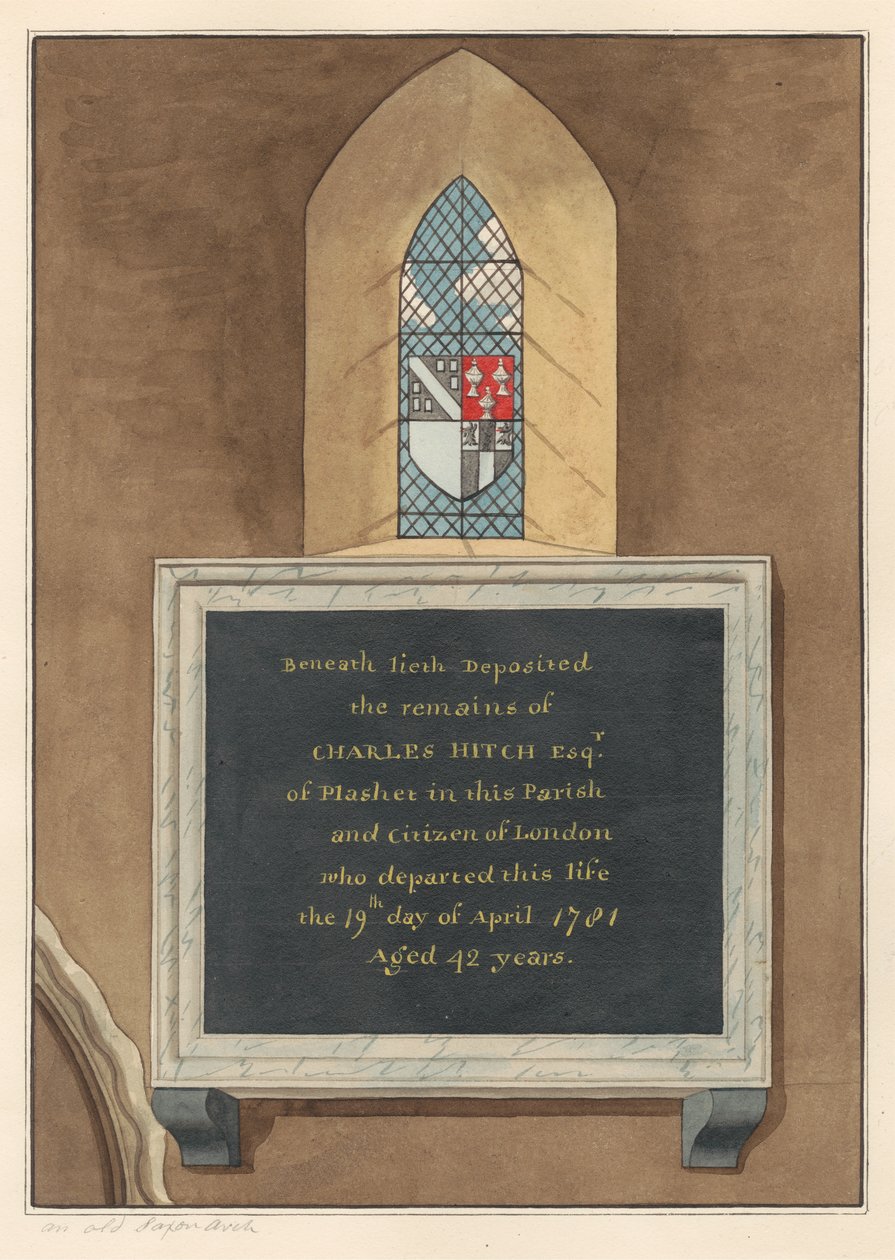 Beneath lieth Deposited
the remains of
CHARLES HITCH Esqr.
of Plashet in this Parish
and Citizen of London
who departed this life
the 19th day of April 1781
Aged 42 years.
an old Saxon Arch